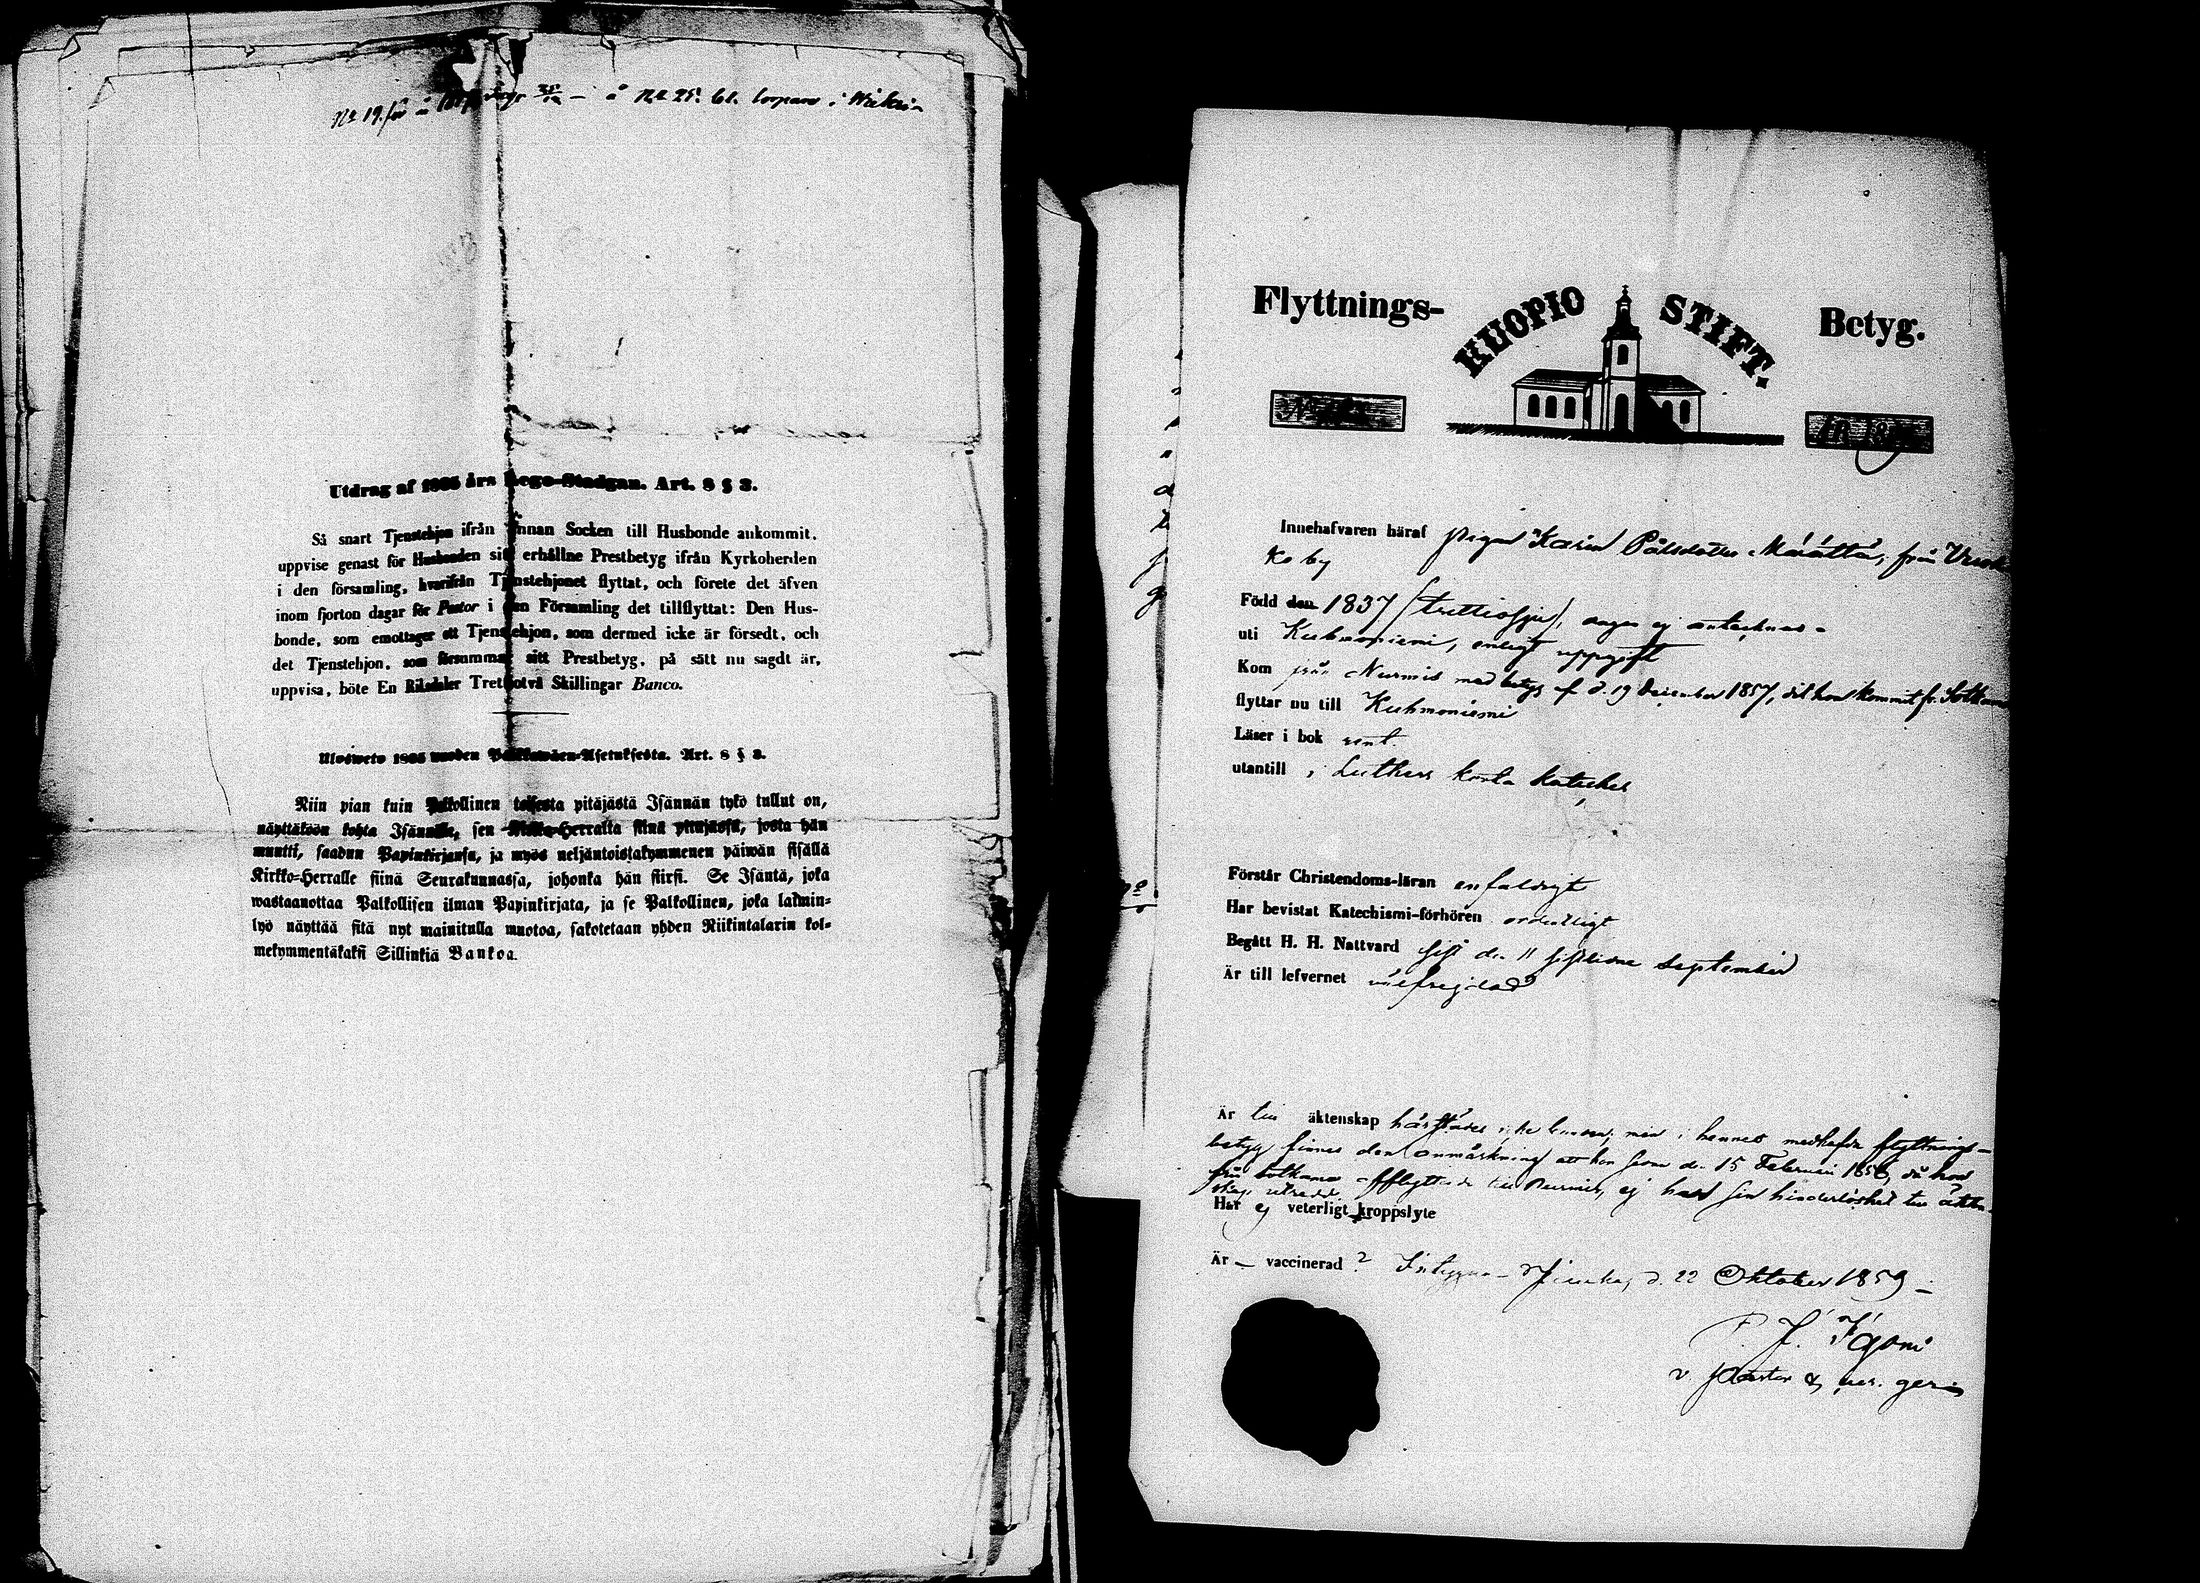 Utdrag af 1865 års Lego-Stadgan. Art. 8 § 3.
Så snart Tjenstehjon ifrån annan Socken till Husbonde ankommit,
uppvise genast för Husbonden sitt erhållne Prestbetyg ifrån Kyrkoherden
i den församling, hvarifrån Tjenstehjonet flyttat, och förete det äfven
inom fjorton dagar för Pastor i den Församling det tillflyttat: Den Hus-
bonde, som emottager ett Tjenstehjon, som dermed icke är försedt, och
det Tjenstehjon, som försummat sitt Prestbetyg, på sätt nu sagdt är,
uppvisa, böte En Riksdaler Trettiotvå Skillingar Banco.
Niin pian kuin Palkollinen toisesta pitäjästä Isännän tykö tullut on,
näyttäköön kohta Isännälle, sen Kirkko-Herralta siinä pitäjässä, josta hän
muutti, saadun Papinkirjansa, ja myös neljäntoistakymmenen päiwän sisällä
Kirkko-Herralle siinä Seurakunnassa, johonka hän siirsi. Se Isäntä, joka
wastaanottaa Palkollisen ilman Papinkirjata, ja se Palkollinen, joka laimin-
lyö näyttää sitä nyt mainitulla muotoa, sakotetaan yhden Riikintalarin kol-
mekymmentäkaksi Sillinkiä Bankoa.
Flyttnings- KUOPIO STIFT. Betyg.
Innehafvaren häraf pigan Karin Pålsdotter Määttä, från
koby
Född den 1837 (trettiosju), dagen ej antecknad
uti Kuhmoniemi, enligt uppgift
Kom från Nurmis med betyg af d. 19 December 1857, dit hon kommit fr. Sotkamo
flyttar nu till Kuhmoniemi
Läser i bok rent.
utantill i Luthers korta kateches
Förstår Christendoms-läran enfaldigt
Har bevistat Katechismi-förhören ordentligt
Begått H. H. Nattvard sist den 11 sistlidne September
Är till lefvernet välfrejdad
Är till äktenskap härstädes icke men i hennes medhafda flyttnings-
betyg finnes den anmärkning att hon före den 15 Februari 1856, då hon
från Sotkamo afflyttade till Nurmis, ej haft sin hinderlöshet till äkten-
skap utredd.
Har ej veterligt kroppslyte
Är — vaccinerad? d. 22 Oktober 1859
v Pastor